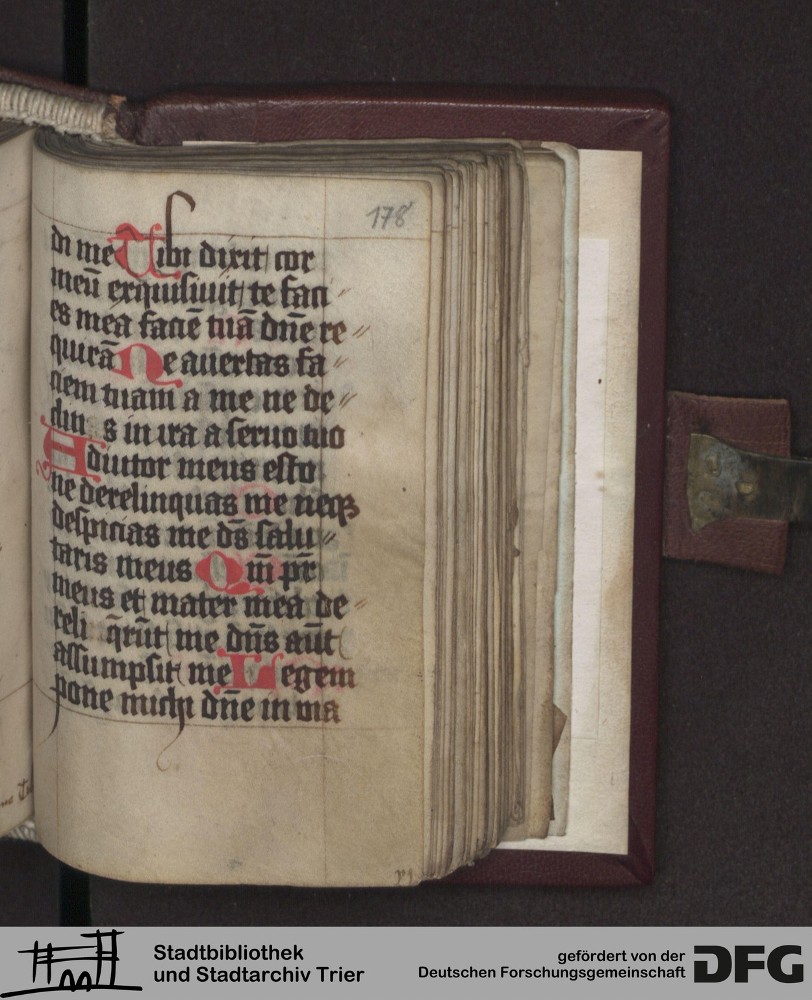 178
di me Tibi dixit cor
meū exquisiuit te faci〃
es mea faciē tuā dn̄e re〃
quirā Ne auertas fa〃
ciem tuam a me ne de〃
clin s in ira a seruo tuo
Adiutor meus esto
ne derelinquas me neqꝫ
despicias me ds̄ salu〃
taris meus Qm̄ pr̄
meus et mater mea de〃
reli q̄rūt me dn̄s aūt
assumpsit me Legem
pone michi dn̄e in via
Stadtbibliothek
und Stadtarchiv Trier
gefördert von der
Deutschen Forschungsgemeinschaft
DFG